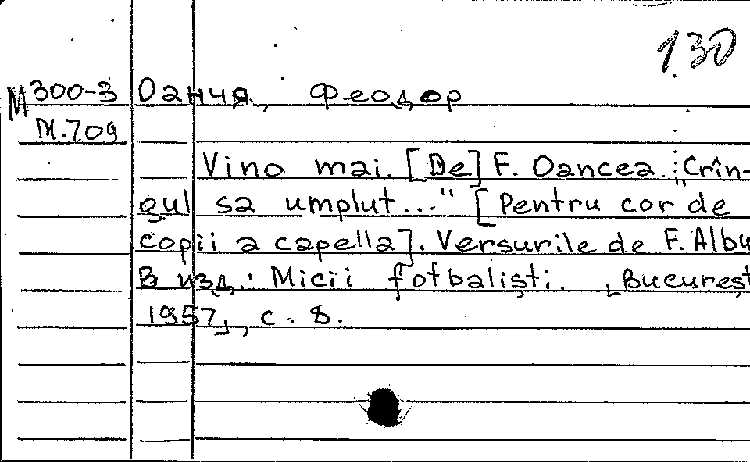 130
М300-3 Оанчя, Феодор
М.709
Vino mai. [De] F. Oancea. "Crîn-
gul sa umplut..." [Pentru cor de
copii a capella]. Versurile de F. Albu
В изд.: Micii fotbaliști. [Bucureșt
1957], с. 8.